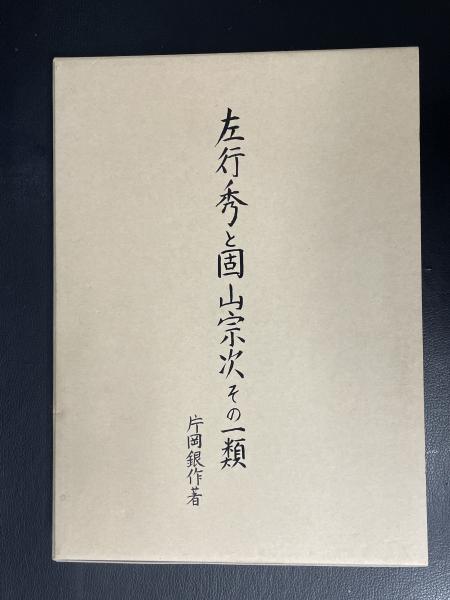 左行秀と固山宗次その一類
片岡銀作著